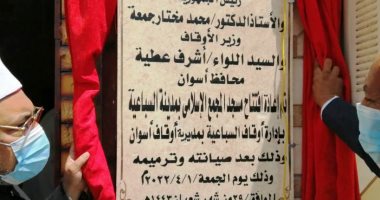 رئيس الجمهورية
والأستاذ الدكتور/ محمد مختار جمعة
وزير الأوقاف
والسيد اللواء/ أشرف عطية
محافظ أسوان
إعادة افتتاح مسجد المجمع الإسلامي بمدينة السباعية
بإدارة أوقاف السباعية بمديرية أوقاف أسوان
وذلك بعد صيانته وترميمه
وذلك يوم الجمعة ٢٠٢٢/٤/١
الموافق ٢٩ من شهر شعبان ١٤٤٣هـ